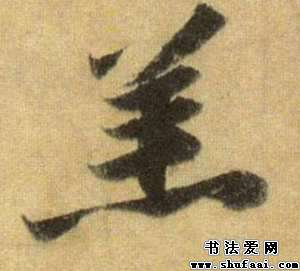 羔
书法爱网
www.shufaai.com